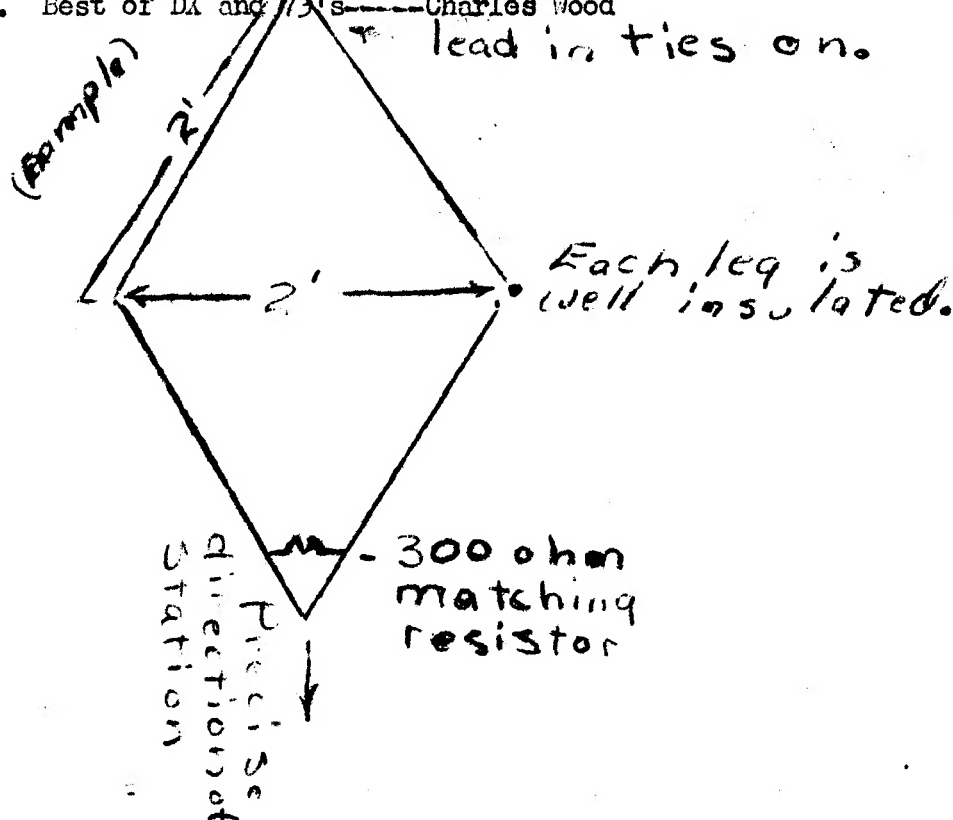 . Best of DX and 73's-----Charles Wood
lead in ties on.
(Example)
2'
2'
Each leg is
well insulated.
300 ohm
matching
resistor
Precise
direction of
Station